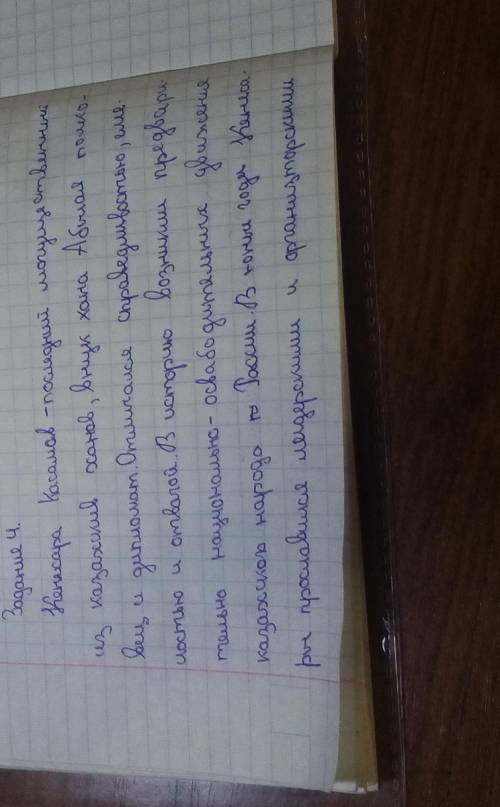 Задание 4.
Кенесара Касымов - последний могущественный
из казахских ханов, внук хана Абылая полко-
вец и дипломат. Отличался справедливостью, сме-
лостью и отвагой. В историю возникши предвари
тельно национально-освабодительных движение
казахского народа России. В юные годы Кенеса-
ры прославился лидерскими и организторскими